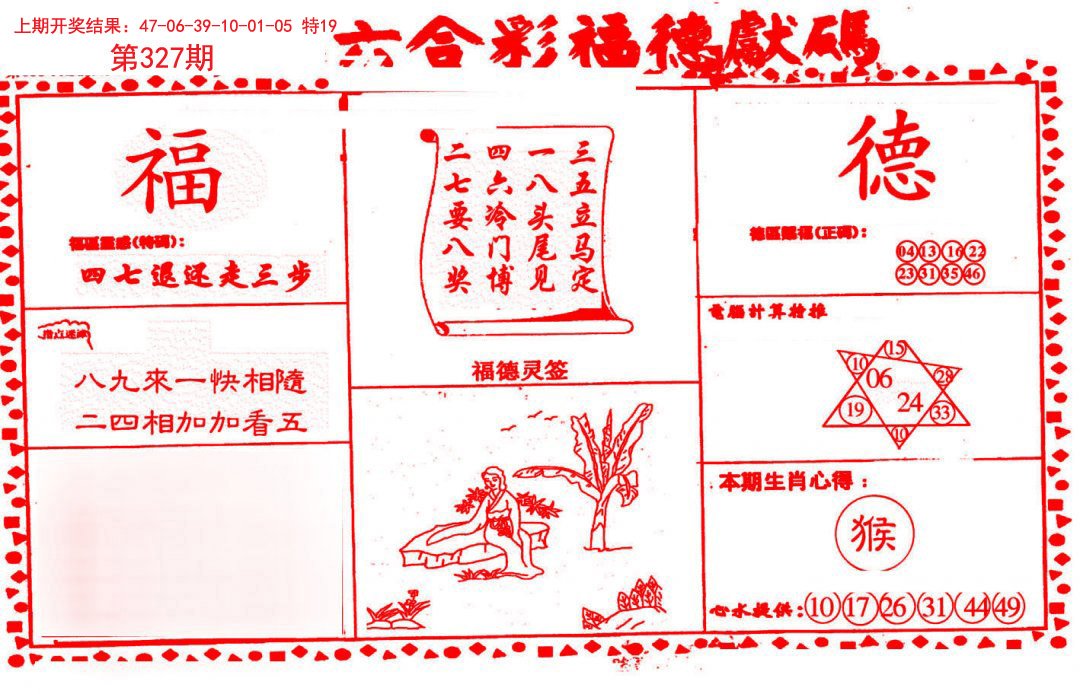 上期开奖结果：47-06-39-10-01-05 特19
第327期
六合彩福德獻碼
福
福區靈感(特碼)：
四七退还走三步
指点迷津
八九來一快相隨
二四相加加看五
三五立马定
一八头尾见
四六冷门博
二七要八奖
福德灵签
德
德區賜福(正碼)：
04 13 16 22
23 31 35 46
電腦計算特推
15
10 06 28
19 24 33
10
本期生肖心得：
猴
心水提供：10 17 26 31 44 49